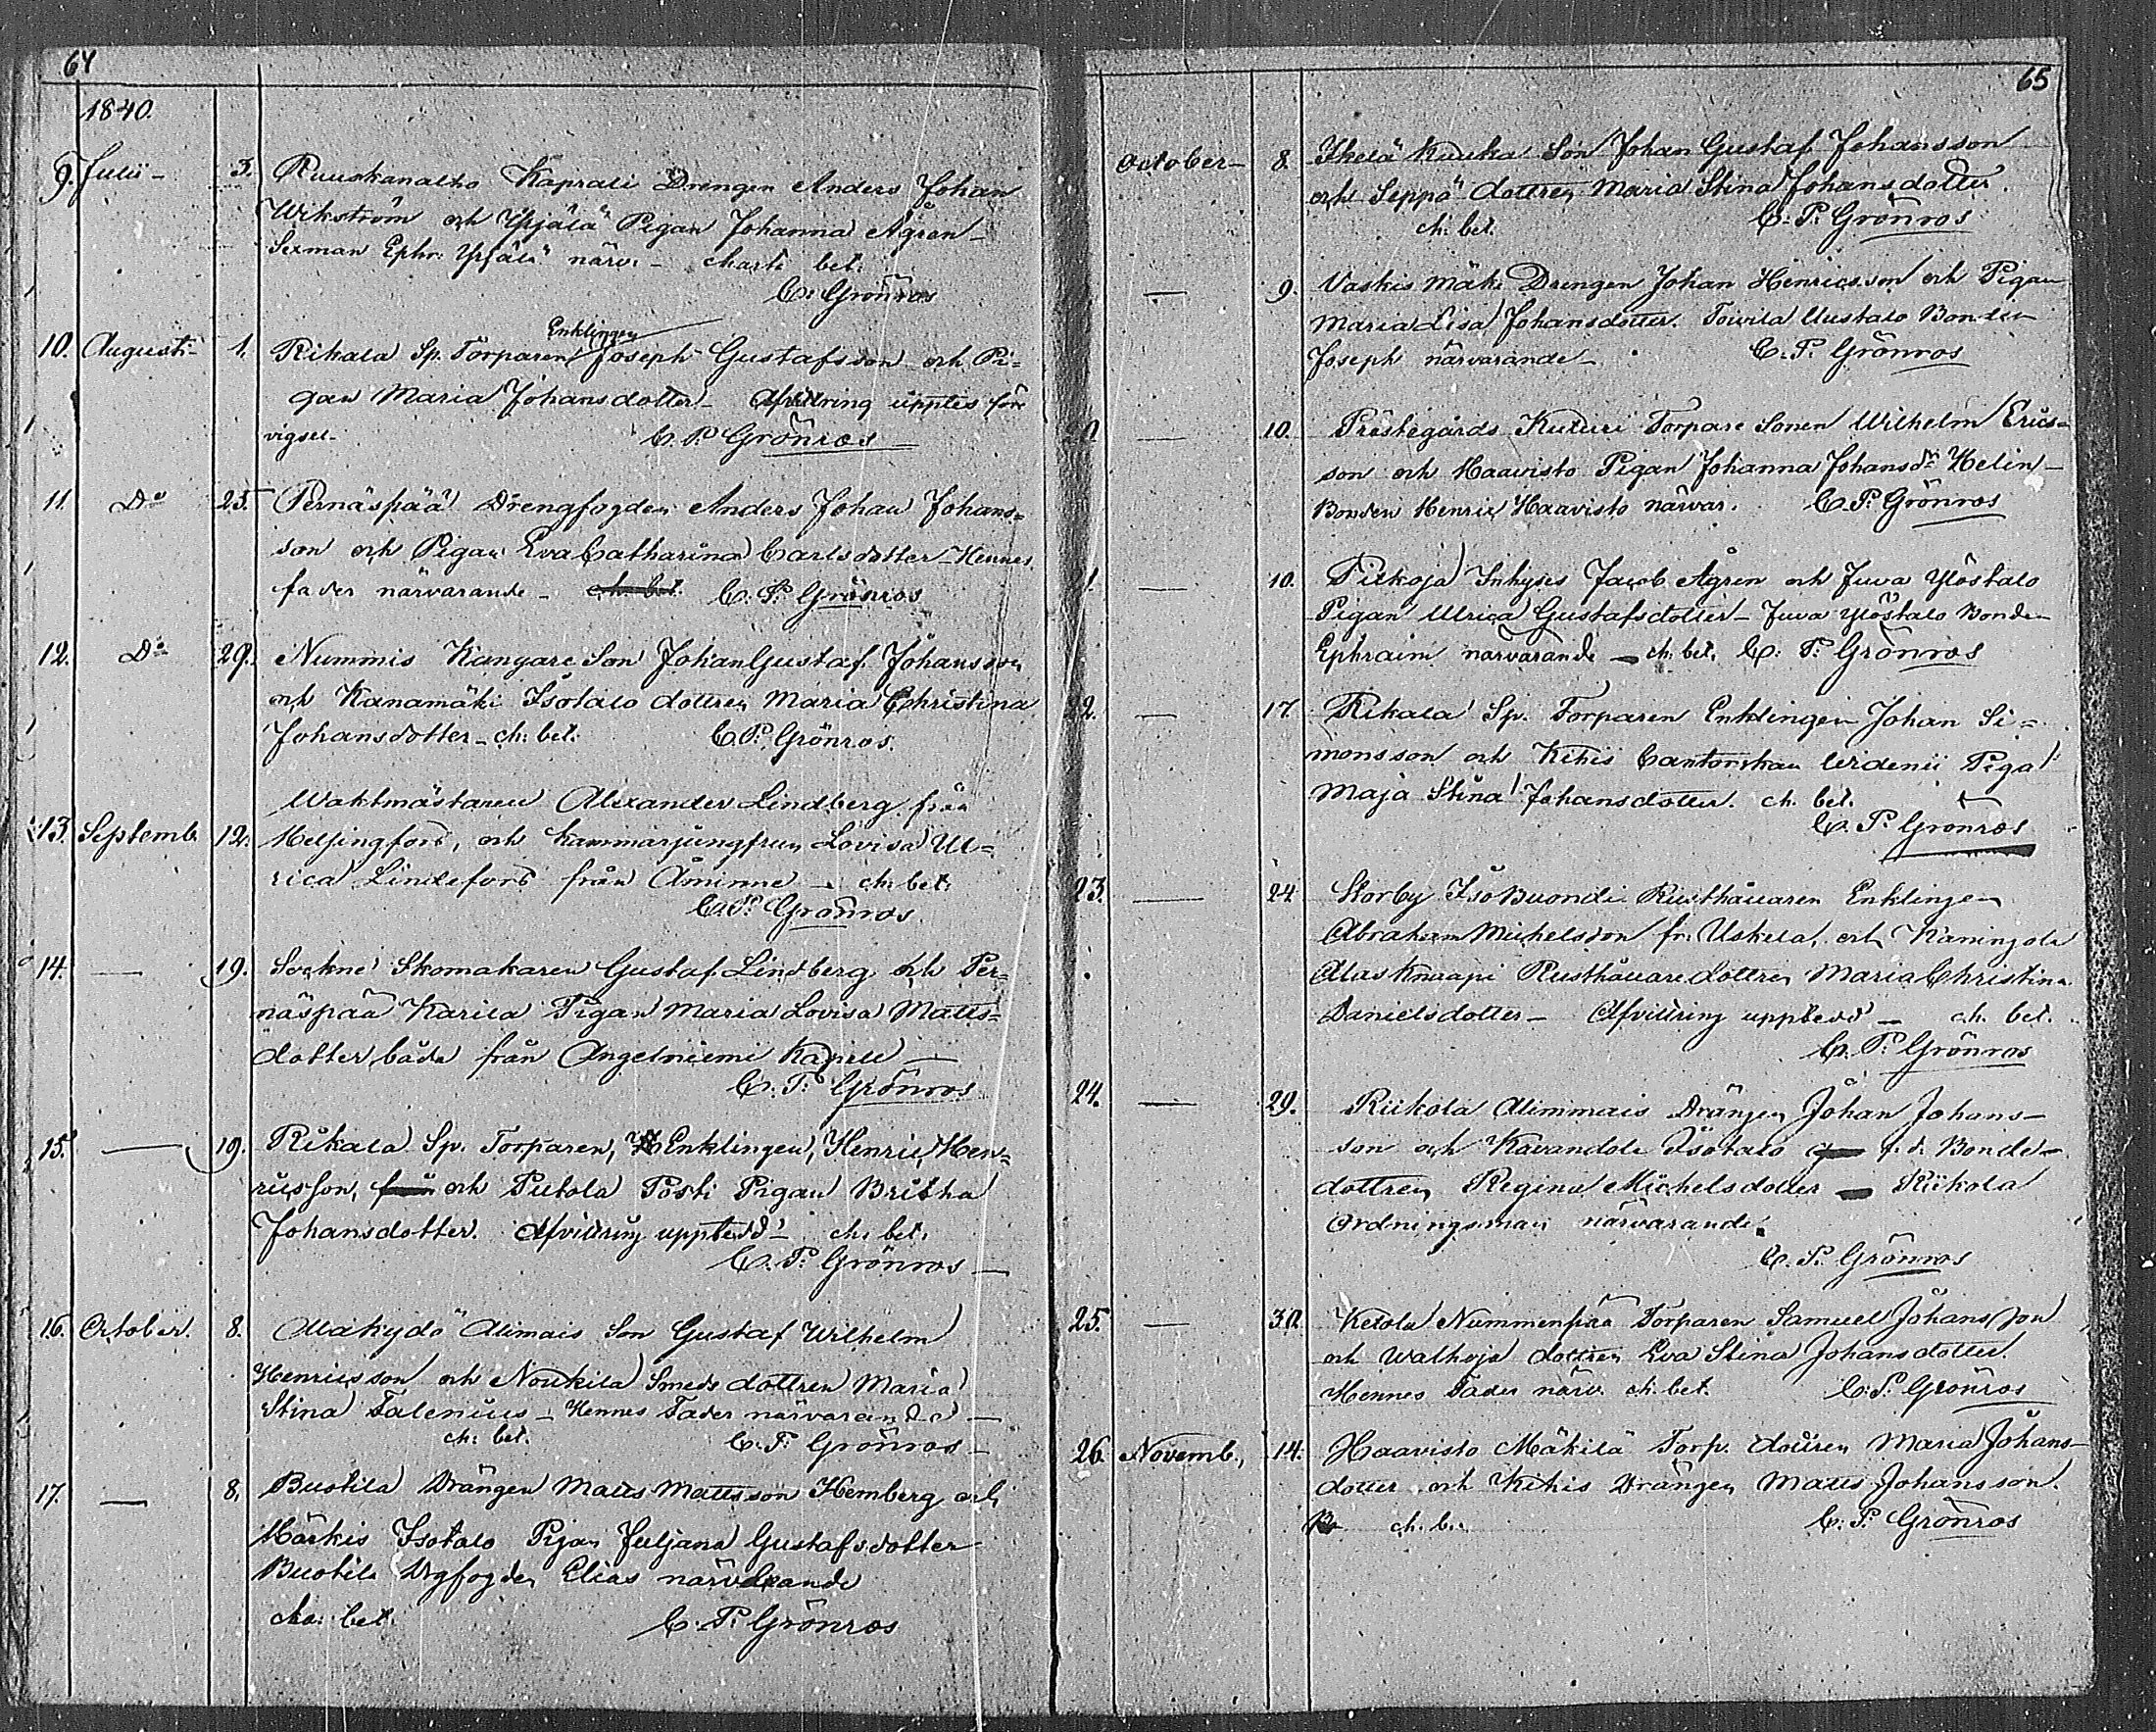 64
1840.
9. Julii - 3. Ruuskanalho Kaprali Drengen Anders Johan
Wikström och Yrjälä Pigan Johanna Ågren -
Sexman Ephr. Yrjälä närv. - charts bet.
C. Grönros
10. Augusti - 1. Rikala Sp. Torparen Enklingen Joseph Gustafsson och Pi=
gan Maria Johansdotter - Afvittring upptes före
vigsel - C. P. Grönros
11. Do 25. Pernäspää Drengfogden Anders Johan Johans=
son och Pigan Eva Catharina Carlsdotter - Hennes
fader närvarande - ch. bet. C. P. Grönros
12. Do 29. Nummis Kangare Son Johan Gustaf Johansson
och Kanamäki Isotalo dottren Maria Christina
Johansdotter - ch: bet. C. P. Grönros.
Waktmästaren Alexander Lindberg från
13. Septemb. 12. Helsingfors, och kammarjungfrun Lovisa Ul=
rica Lindefors från Åminne - ch: bet.
C. P. Grönros.
14. — 19. Sockne Skomakaren Gustaf Lindberg och Per=
näspää Karila Pigan Maria Lovisa Matts=
dotter, båda från Angelniemi Kapell —
C. P. Grönros
15. — 19. Rikala Sp. Torparen, Enklingen, Henric Hen=
ricsson, från och Putola Posti Pigan Britha
Johansdotter. Afvittring uppteed - ch. bet.
C. P. Grönros —
16. October. 8. Alakydö Alimais Son Gustaf Wilhelm
Henricsson och Noukila Smeds dottren Maria
Stina Talenius - Hennes Fader närvarande —
ch. bet. C. P. Grönros -
17. — 8. Buotila Drängen Matts Mattsson Hemberg och
Märkis Isotalo Pigan Juljana Gustafsdotter
Buotila Drgfogden Elias närvarande
cha. bet. C. P. Grönros
65
October - 8. Ikelä Kauka Son Johan Gustaf Johansson
och Seppä dottren Maria Stina Johansdotter.
ch. bet. C. P. Grönros
— 9. Vaskis Mäki Drengen Johan Henricsson och Pigan
Maria Lisa Johansdotter. Toivila Uustalo Bonden
Joseph närvarande - C. P. Grönros
— 10. Prästegårds Kuturi Torpare Sonen Wilhelm Erics=
son och Haavisto Pigan Johanna Johansdr Helin -
Bonden Henric Haavisto närvar. C. P. Grönros
21. — 10. Pitkoja Inhyses Jacob Ågren och Juva Ylöstalo
Pigan Ulrica Gustafsdotter - Juva Ylöstalo Bonden
Ephraim närvarande - ch. bet. C. P. Grönros
22. — 17. Rikala Sp. Torparen Enklingen Johan Si=
monsson och Kihis Cantorskan Pigа
Maja Stina Johansdotter. ch. bet.
C. P. Grönros
23. — 24. Storby Iso Buondi Rusthållaren Enklingen
Abraham Michelsson fr. Uskela, och Kaningola
Alas Knaapi Rusthållare dottren Maria Christina
Danielsdotter - Afvittring uppteed - ch. bet.
C. P. Grönros
24. — 29. Riikola Alimmais Drängen Johan Johans-
son och Kavandola Isotalo f. d. Bonde-
dottren Regina Michelsdotter - Riikola
Ordningsman närvarande.
C. P. Grönros
25. — 30. Ketola Nummenpää Torparen Samuel Johansson
och Walhoja dottren Eva Stina Johansdotter
Hennes Fader närv. ch. bet. C. P. Grönros
26. Novemb., 14. Haavisto Mäkilä Torp. dottren Maria Johans-
dotter och Kihis Drängen Matts Johansson.
ch. b. C. P. Grönros